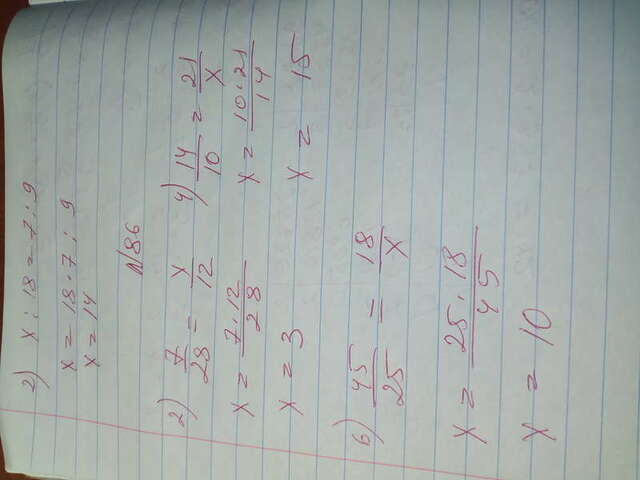 2) x : 18 = 7 : 9
x = 18 · 7 : 9
x = 14
№86
2) 7/28 = x/12
x = 7·12/28
x = 3
4) 14/10 = 21/x
x = 10·21/14
x = 15
6) 45/25 = 18/x
x = 25·18/45
x = 10